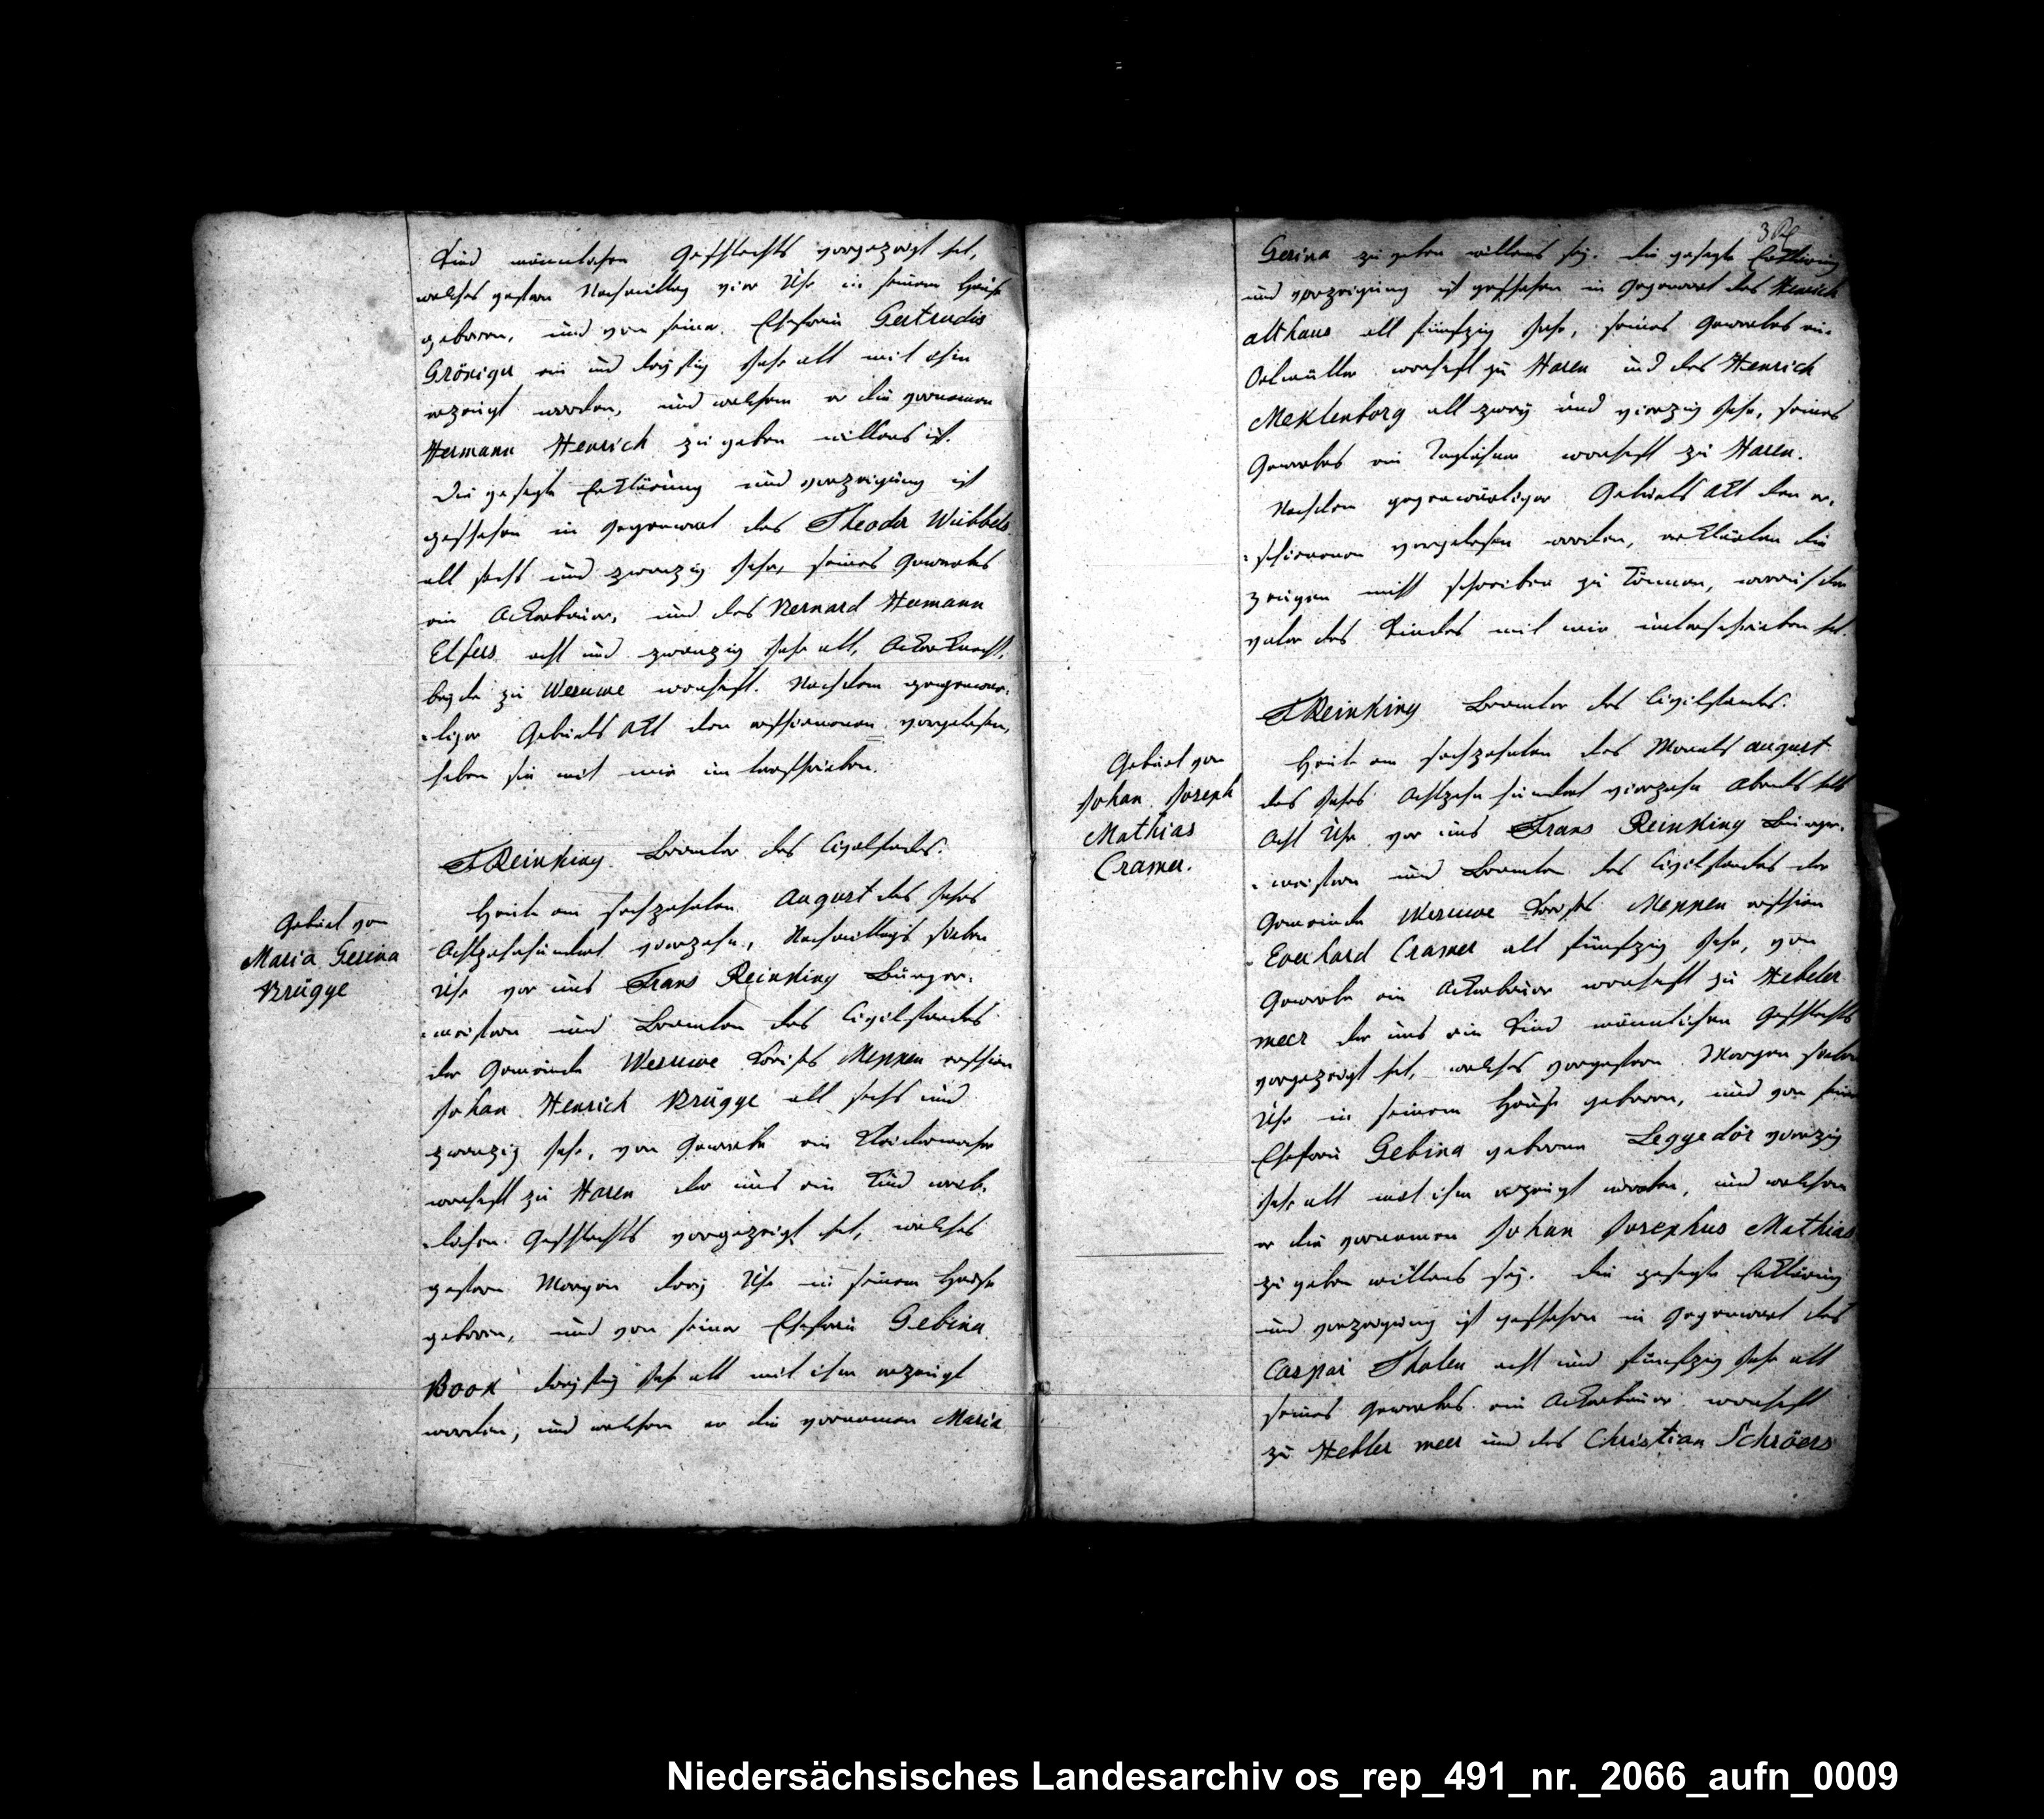 Kind männlichen Geschlechts vorgezeigt hat,
welches gestern Nachmittag vier Uhr in seinem Hause
gebohren, und von seiner Ehefrau Gertrudis
Gröniger ein und dreyßig Jahr alt mit ihm
erzeugt worden, und welchem er die vornamen
Hermann Henrich zu geben willens ist.
Die gesagte Erklärung und vorzeigung ist
geschehen in Gegenwart des Theodor Wübbels
alt sechs und zwanzig Jahr, seines Gewerbes
ein Ackerbauer, und des Bernard Hermann
Elfers acht und zwanzig Jahr alt, Ackerknecht,
beyde zu Wesuwe wonhaft. Nachdem gegenwär-
-tiger Geburts Akt den erschienenen vorgelesen,
haben sie mit mir unterschrieben.
FReinking Beamter des Civilstandes.
Geburt von
Maria Gesina
Brügge
Heute am sechzehnten August des Jahrs
Achtzehnhundert vierzehn, Nachmittags sieben
Uhr vor uns Frans Reinking Bürger-
-meistern und Beamten des Civilstandes
der Gemeinde Wesuwe Kreises Meppen erschien
Johan Henrich Brügge alt sechs und
zwanzig Jahr, von Gewerbe ein Kleidermacher
wonhaft zu Haren der uns ein Kind weib-
-lichen Geschlechts vorgezeigt hat, welches
gestern Morgen drey Uhr in seinem Hause
geboren, und von seiner Ehefrau Gebina
Book dreyßig Jahr alt mit ihm erzeugt
worden, und welchem er die vornamen Maria
Gesina zu geben willens sey. Die gesagte Erklärung
und vorzeigung ist geschehen in Gegenwart des Henrich
althaus alt fünfzig Jahr, seines Gewerbes ein
Oelmüller wonhaft zu Haren und des Henrich
Meklenborg alt zwey und vierzig Jahr, seines
Gewerbes ein Taglöhner wonhaft zu Haren.
Nachdem gegenwärtiger Geburts Akt den er-
-schienenen vorgelesen worden, erklärten die
zeugen nicht schreiben zu können, worauf der
vater des Kindes mit mir unterschrieben hat.
FReinking Beamter des Civilstandes.
Geburt von
Johan Joseph
Mathias
Cramer.
Heute am sechzehnten des Monats august
des Jahrs Achtzehn hundert vierzehn Abends halb
Acht Uhr vor uns Frans Reinking Bürger-
-meistern und Beamten des Civilstandes der
Gemeinde Wesuwe Kreises Meppen erschien
Everhard Cramer alt fünfzig Jahr, von
Gewerbe ein Ackerbauer wonhaft zu Hebeler
meer der uns ein Kind männlichen Geschlechts
vorgezeigt hat, welches vorgestern Morgen sieben
Uhr in seinem Hause geboren, und von seiner
Ehefrau Gebina geboren Leggedör vierzig
Jahr alt mit ihm erzeugt worden, und welchem
er die vornamen Johan Josephus Mathias
zu geben willens sey. Die gesagte Erklärung
und vorzeigung ist geschehen in Gegenwart des
Caspar Tholen acht und fünfzig Jahr alt
seines Gewerbes ein Ackerbauer wonhaft
zu Hebler meer und des Christian Schröers
Niedersächsisches Landesarchiv os_rep_491_nr._2066_aufn_0009